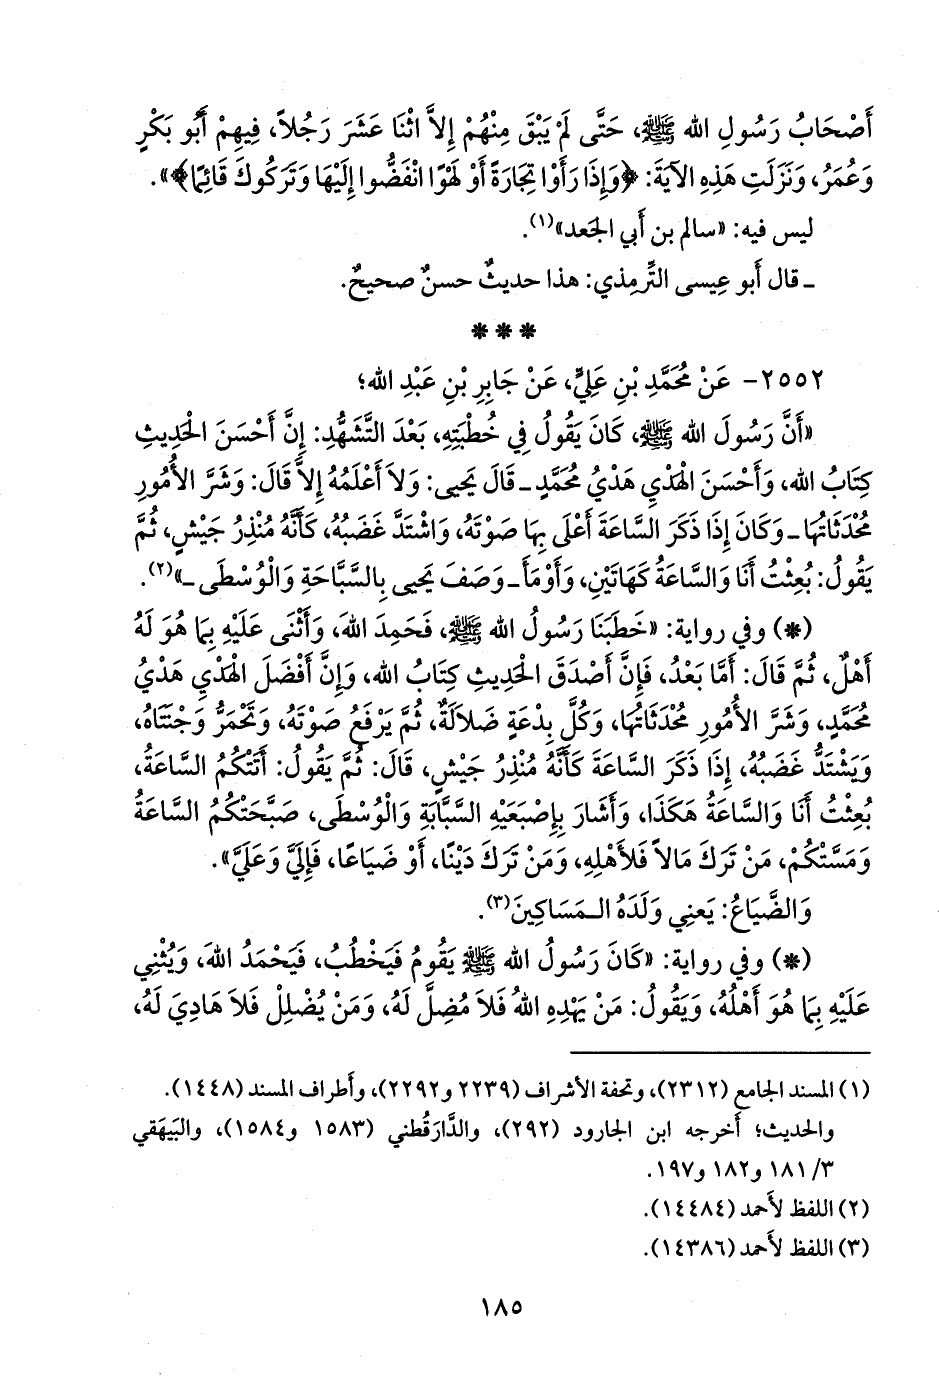 أَصْحَابُ رَسُولِ الله ﷺ، حَتَّى لَمْ يَبْقَ مِنْهُمْ إِلاَّ اثْنَا عَشَرَ رَجُلاً، فِيهِمْ أَبُو بَكْرٍ
وَعُمَرُ، وَنَزَلَتِ هَذِهِ الآيَةَ: ﴿وَإِذَا رَأَوْا تِجَارَةً أَوْ لَهْوًا انْفَضُّوا إِلَيْهَا وَتَرَكُوكَ قَائِمًا﴾».
ليس فيه: «سالم بن أَبي الجَعد»(١).
ـ قال أَبو عِيسى التِّرمِذي: هذا حديثٌ حسنٌ صحيحٌ.
***
٢٥٥٢- عَنْ مُحَمَّدِ بْنِ عَلِيٍّ، عَنْ جَابِرِ بْنِ عَبْدِ الله؛
«أَنَّ رَسُولَ الله ﷺ، كَانَ يَقُولُ فِي خُطْبَتِهِ، بَعْدَ التَّشَهُّدِ: إِنَّ أَحْسَنَ الْحَدِيثِ
كِتَابُ الله، وَأَحْسَنَ الْهَدْيِ هَدْيُ مُحَمَّدٍ ـ قَالَ يَحيى: وَلاَ أَعْلَمُهُ إِلاَّ قَالَ: وَشَرَّ الأُمُورِ
مُحْدَثَاتُهَا ـ وَكَانَ إِذَا ذَكَرَ السَّاعَةَ أَعْلَى بِهَا صَوْتَهُ، وَاشْتَدَّ غَضَبُهُ، كَأَنَّهُ مُنْذِرُ جَيْشٍ، ثُمَّ
يَقُولُ: بُعِثْتُ أَنَا وَالسَّاعَةُ كَهَاتَيْنِ، وَأَوْمَأَ ـ وَصَفَ يَحيى بِالسَّبَّاحَةِ وَالْوُسْطَى ـ»(٢).
(*) وفي رواية: «خَطَبَنَا رَسُولُ الله ﷺ، فَحَمِدَ اللهَ، وَأَثْنَى عَلَيْهِ بِمَا هُوَ لَهُ
أَهْلٌ، ثُمَّ قَالَ: أَمَّا بَعْدُ، فَإِنَّ أَصْدَقَ الْحَدِيثِ كِتَابُ الله، وَإِنَّ أَفْضَلَ الْهَدْيِ هَدْيُ
مُحَمَّدٍ، وَشَرَّ الأُمُورِ مُحْدَثَاتُهَا، وَكُلَّ بِدْعَةٍ ضَلاَلَةٌ، ثُمَّ يَرْفَعُ صَوْتَهُ، وَتَحْمَرُّ وَجْنَتَاهُ،
وَيَشْتَدُّ غَضَبُهُ، إِذَا ذَكَرَ السَّاعَةَ كَأَنَّهُ مُنْذِرُ جَيْشٍ، قَالَ: ثُمَّ يَقُولُ: أَتَتْكُمُ السَّاعَةُ،
بُعِثْتُ أَنَا وَالسَّاعَةُ هَكَذَا، وَأَشَارَ بِإِصْبَعَيْهِ السَّبَّابَةِ وَالْوُسْطَى، صَبَّحَتْكُمُ السَّاعَةُ
وَمَسَّتْكُمْ، مَنْ تَرَكَ مَالاً فَلأَهْلِهِ، وَمَنْ تَرَكَ دَيْنًا، أَوْ ضَيَاعًا، فَإِلَيَّ وَعَلَيَّ».
وَالضَّيَاعُ: يَعنِي وَلَدَهُ الـمَسَاكِينَ(٣).
(*) وفي رواية: «كَانَ رَسُولُ الله ﷺ يَقُومُ فَيَخْطُبُ، فَيَحْمَدُ اللهَ، وَيُثْنِي
عَلَيْهِ بِمَا هُوَ أَهْلُهُ، وَيَقُولُ: مَنْ يَهْدِهِ اللهُ فَلاَ مُضِلَّ لَهُ، وَمَنْ يُضْلِلْ فَلاَ هَادِيَ لَهُ،
(١) المسند الجامع (٢٣١٢)، وتحفة الأشراف (٢٢٣٩ و٢٢٩٢)، وأطراف المسند (١٤٤٨).
والحديث؛ أَخرجه ابن الجارود (٢٩٢)، والدَّارَقُطني (١٥٨٣ و١٥٨٤)، والبَيهَقي
٣/ ١٨١ و١٨٢ و١٩٧.
(٢) اللفظ لأَحمد (١٤٤٨٤).
(٣) اللفظ لأَحمد (١٤٣٨٦).
١٨٥